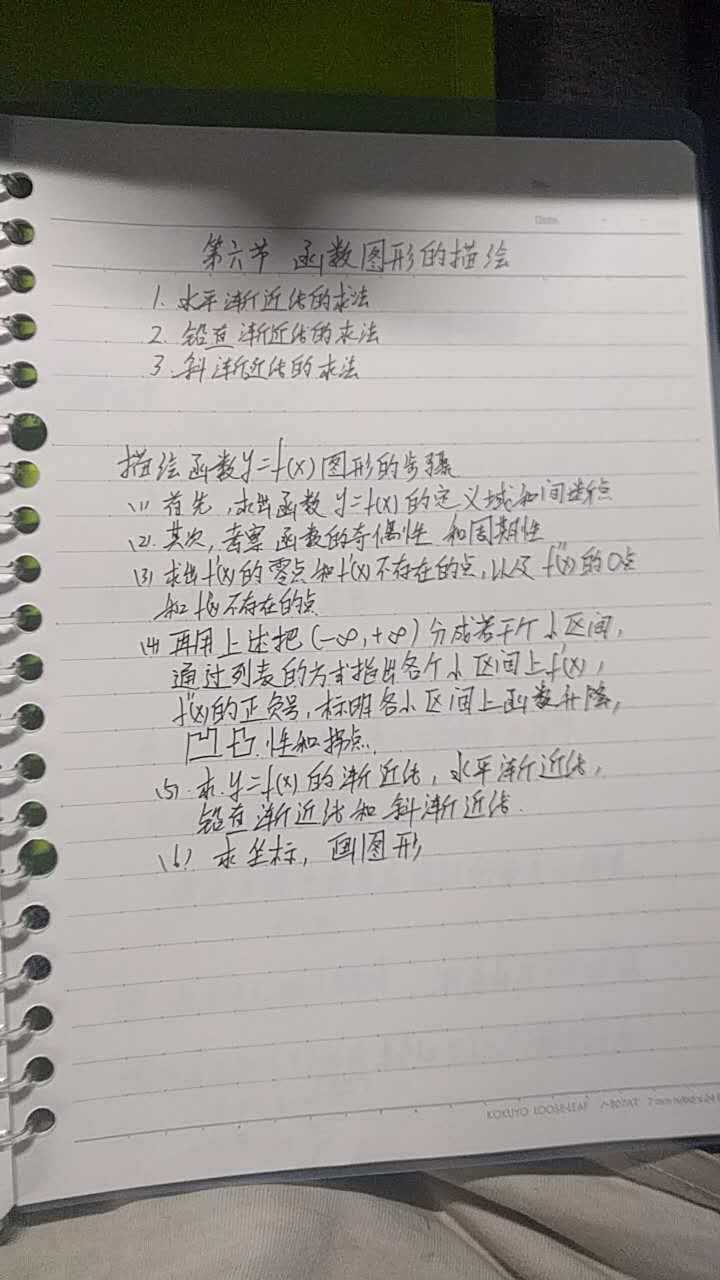 Date.
第六节 函数图形的描绘
1. 水平渐近线的求法
2. 铅直渐近线的求法
3. 斜渐近线的求法
描绘函数y=f(x)图形的步骤
(1) 首先,求出函数 y=f(x)的定义域和间断点
(2). 其次,考察函数的奇偶性 和周期性
(3) 求出f'(x)的零点和f'(x)不存在的点,以及 f''(x)的0点
和 f''(x)不存在的点
(4) 再用上述把(-∞,+∞)分成若干个小区间,
通过列表的方式指出各个小区间上f'(x),
f''(x)的正负号,标明各小区间上函数升降,
凹凸性和拐点.
(5). 求y=f(x)的渐近线,水平渐近线,
铅直渐近线和斜渐近线.
(6) 求坐标,画图形
KOKUYO LOOSE-LEAF